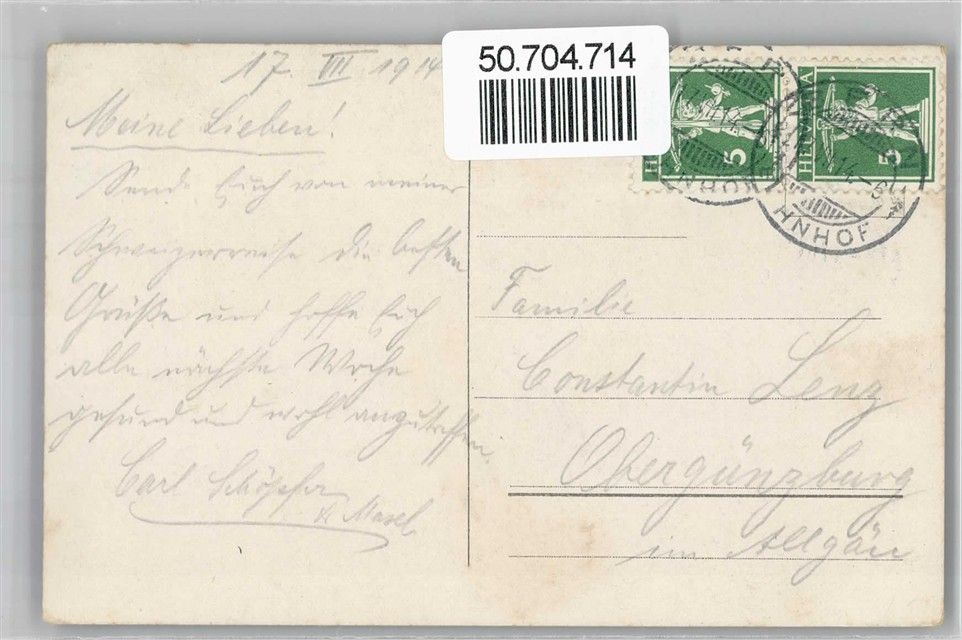 50.704.714
17. III 1914
Meine Lieben!
Sende Euch von meiner
Schweizerreise die besten
Grüße und hoffe Euch
alle nächste Woche
gesund und wohl anzutreffen.
Carl Schöpfer
HELVETIA
5
5
HNHOF
Familie
Constantin Leng
Obergünzburg
im Allgäu